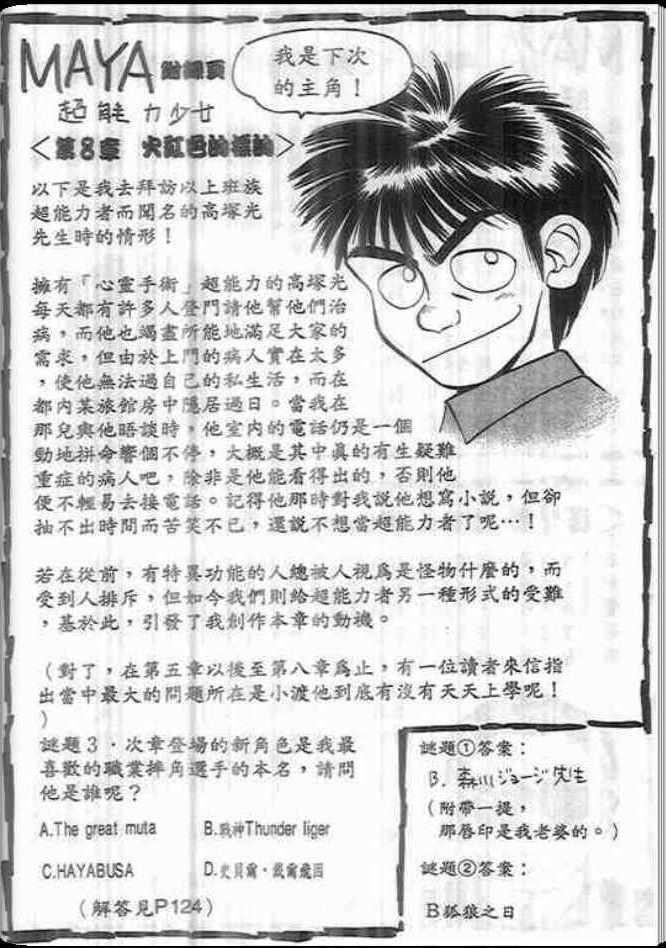 MAYA 附錄頁
超能力少女
＜第8章 火紅色的標的＞
我是下次
的主角！
以下是我去拜訪以上班族
超能力者而聞名的高塚光
先生時的情形！
擁有「心靈手術」超能力的高塚光
每天都有許多人登門請他幫他們治
病，而他也竭盡所能地滿足大家的
需求，但由於上門的病人實在太多
，使他無法過自己的私生活，而在
都內某旅館房中隱居過日。當我在
那兒與他晤談時，他室內的電話仍是一個
勁地拼命響個不停，大概是其中眞的有生疑難
重症的病人吧，除非是他能看得出的，否則他
便不輕易去接電話。記得他那時對我說他想寫小說，但卻
抽不出時間而苦笑不已，還說不想當超能力者了呢…！
若在從前，有特異功能的人總被人視爲是怪物什麼的，而
受到人排斥，但如今我們則給超能力者另一種形式的受難
，基於此，引發了我創作本章的動機。
（對了，在第五章以後至第八章爲止，有一位讀者來信指
出當中最大的問題所在是小渡他到底有沒有天天上學呢！
）
謎題3．次章登場的新角色是我最
喜歡的職業摔角選手的本名，請問
他是誰呢？
A.The great muta
B.戰神Thunder liger
C.HAYABUSA
D.史貝爾．戴爾飛因
（解答見P124）
謎題①答案：
B. 森川ジョージ先生
（附帶一提，
那唇印是我老婆的。）
謎題②答案：
B孤狼之日